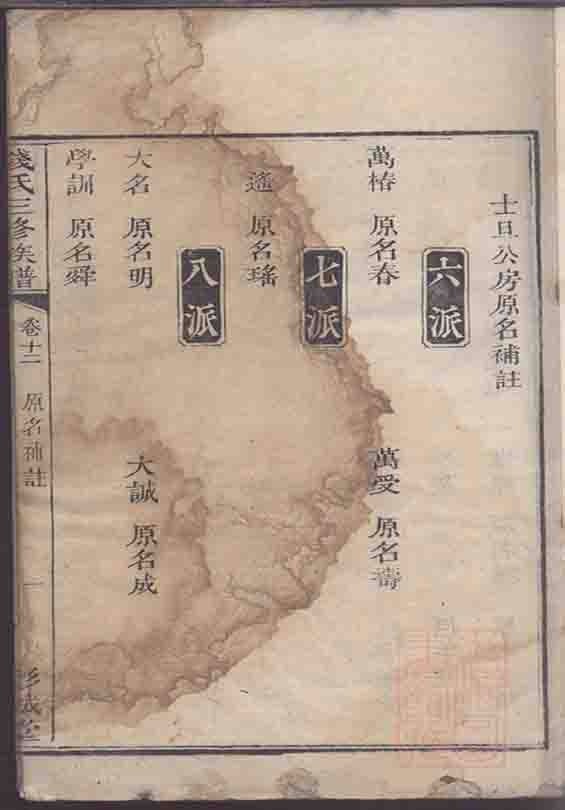 士旦公房原名補註
六派
萬椿 原名春
萬受 原名壽
七派
遙 原名瑤
八派
大名 原名明
大誠 原名成
學訓 原名舜
錢氏三修族譜
卷十二
原名補註
一
彭城堂